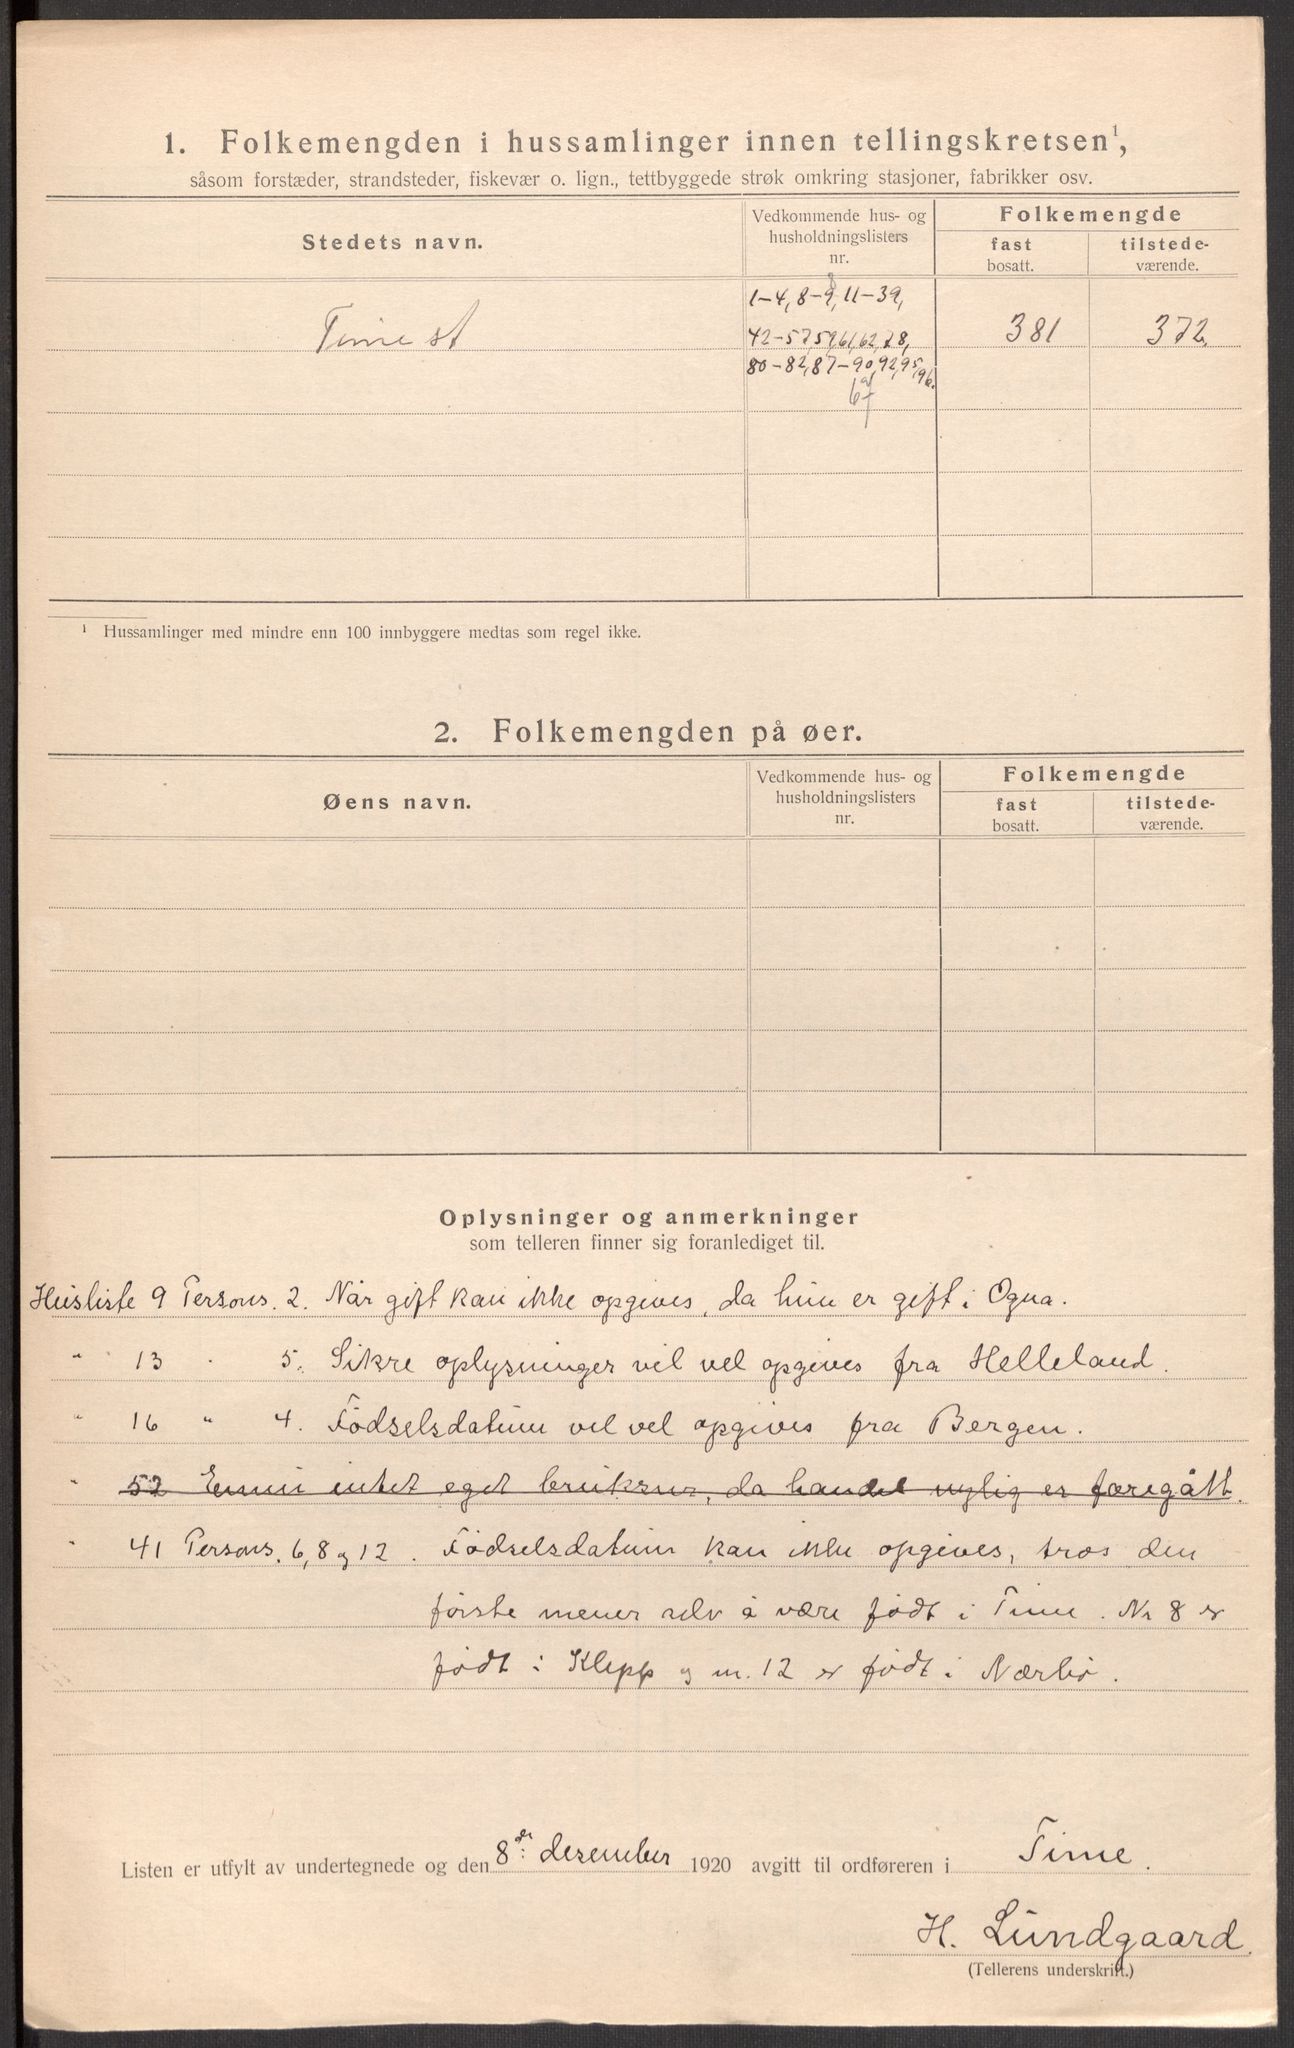 1. Folkemengden i hussamlinger innen tellingskretsen¹,
såsom forstæder, strandsteder, fiskevær o. lign., tettbyggede strøk omkring stasjoner, fabrikker osv.
Stedets navn.
Vedkommende hus- og
husholdningslisters
nr.
Folkemengde
fast
bosatt.
tilstede-
værende.
1-4, 8-9, 11-39,
Time st 42-57, 59, 61, 62, 78, 381 372.
80-82, 87-90, 92, 95, 96.
67
¹ Hussamlinger med mindre enn 100 innbyggere medtas som regel ikke.
2. Folkemengden på øer.
Øens navn.
Vedkommende hus- og
husholdningslisters
nr.
Folkemengde
fast
bosatt.
tilstede-
værende.
Oplysninger og anmerkninger
som telleren finner sig foranlediget til.
Husliste 9 Persons. 2. Når gift kan ikke opgives, da hun er gift i Ogna.
" 13 " 5. Sikre oplysninger vil vel opgives fra Helleland.
" 16 " 4. Födselsdatum vil vel opgives fra Bergen.
" 52 intet eget bruksnr, da handel nylig er foregått.
" 41 Persons. 6, 8 og 12. Födselsdatum kan ikke opgives, tros den
første mener selv å være født i Time. Nr 8 er
født i Klepp og nr. 12 er født i Nærbö.
Listen er utfylt av undertegnede og den 8de desember 1920 avgitt til ordføreren i Time.
H. Lundgaard.
(Tellerens underskrift.)